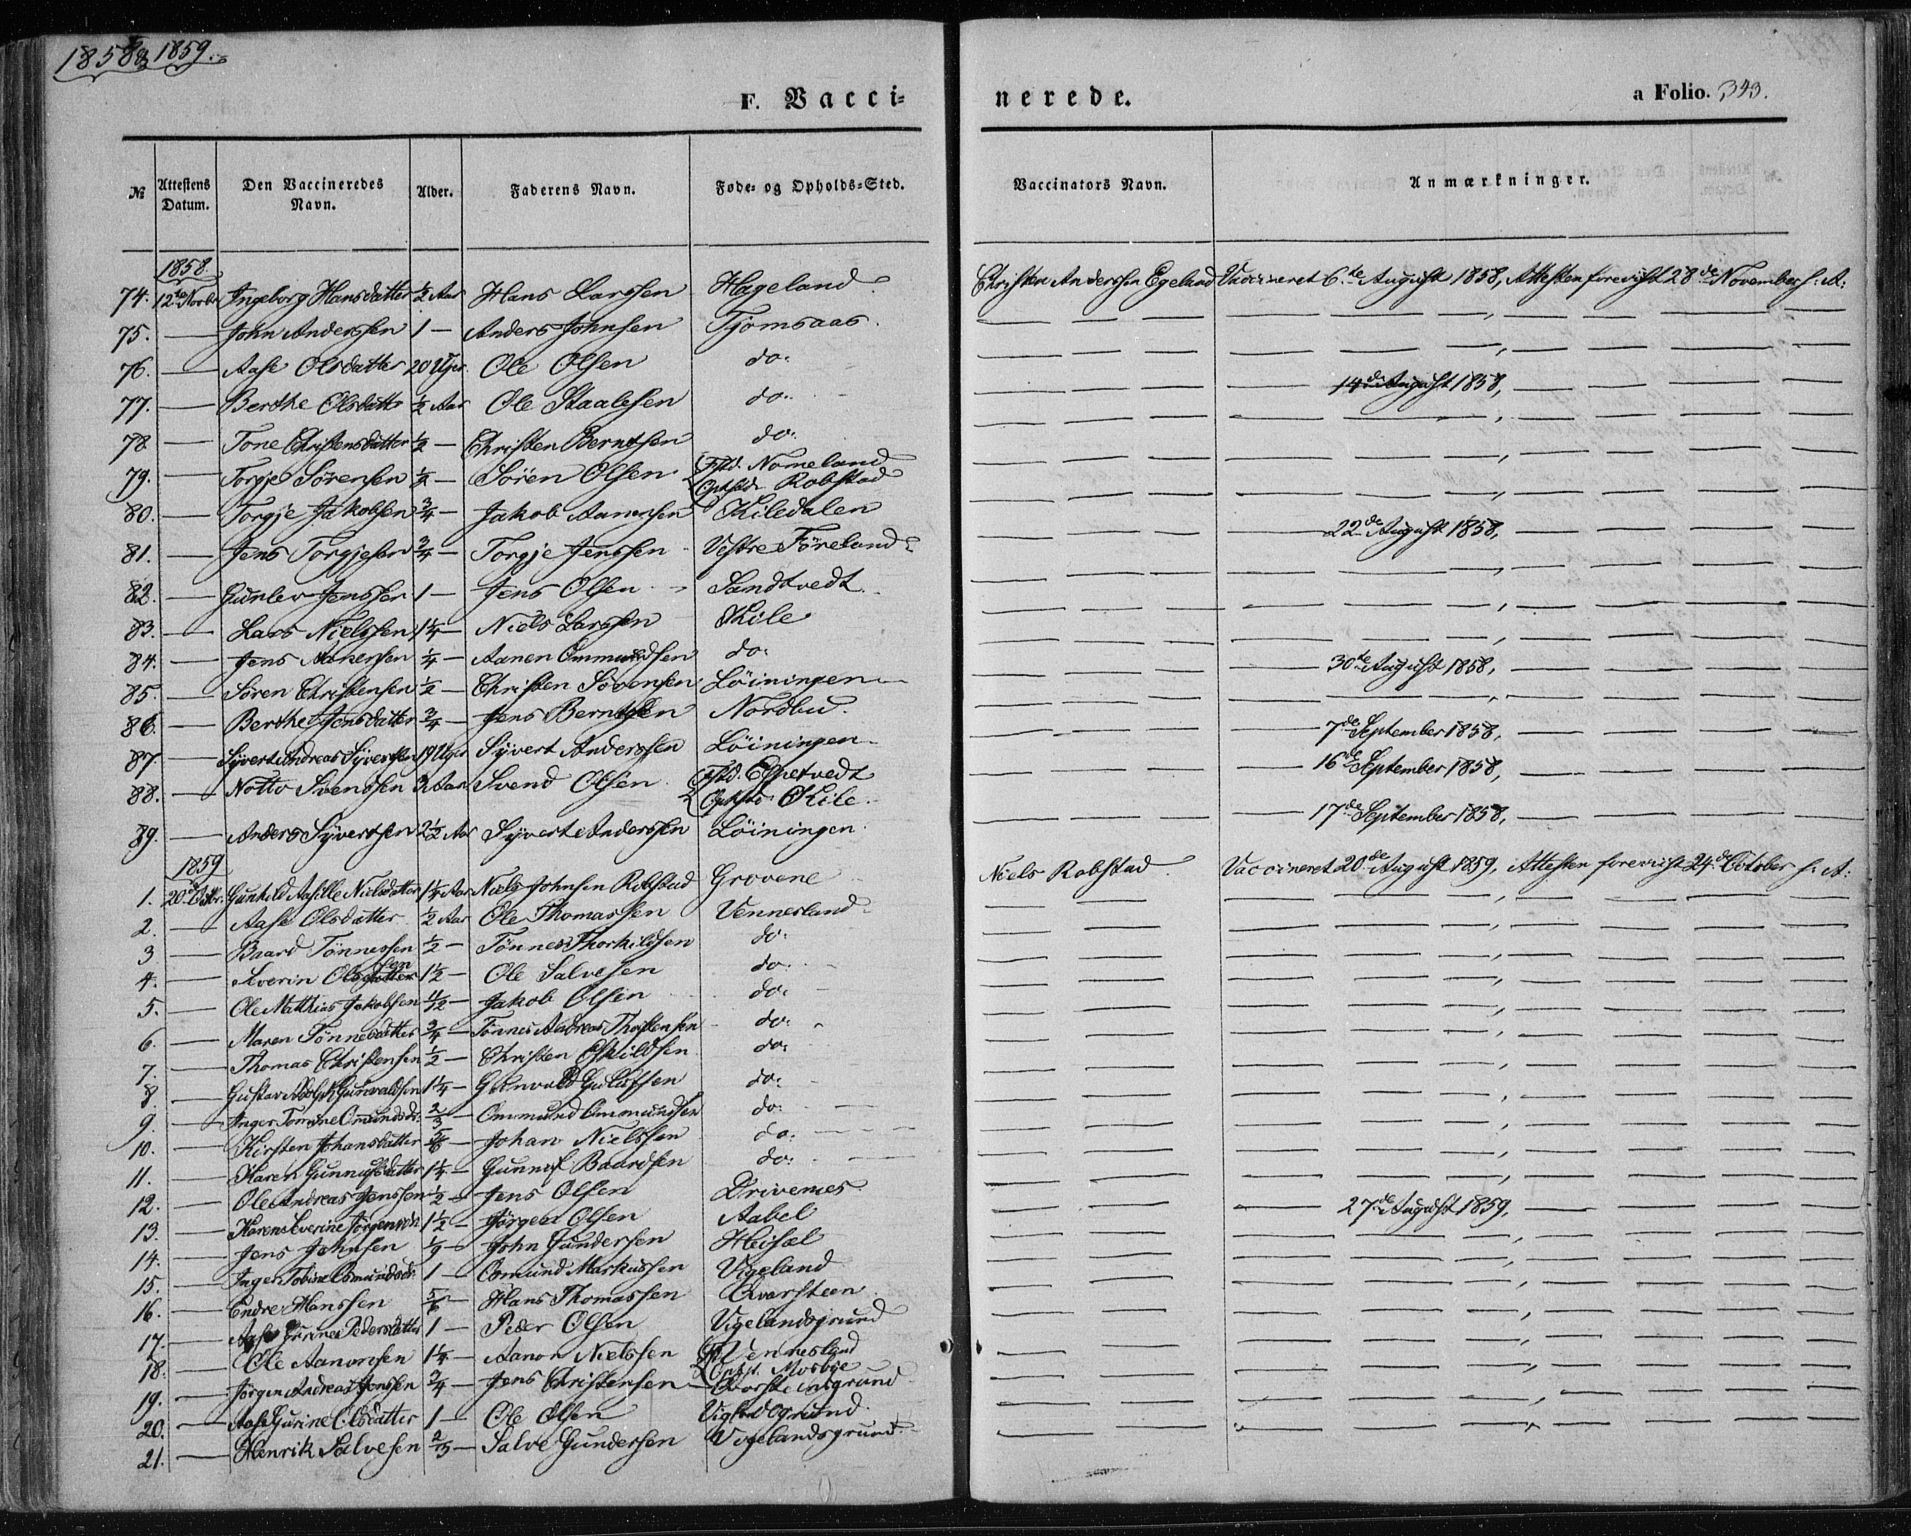 1858 & 1859.
F. Vacci= nerede. a Folio. 343.
№ Attestens Datum. Den Vaccineredes Navn. Alder. Faderens Navn. Føde- og Opholds-Sted. Vaccinators Navn. Anmærkninger.
1858.
74. 12te Novbr Ingeborg Hansdatter ½ Aar Hans Larssen Hageland Christen Anderssen Egeland Vaccineret 6.te August 1858, Attesten forevist 28de November s. A:
75. — John Anderssen 1 — Anders Johnsen Tjomsaas — — — — — — — — , — — — —
76. — Aase Olsdatter 20 Uger Ole Olsen do. — — — — — — — — , — — — —
77. — Berthe Olsdatter ½ Aar Ole Staalesen do. — — — — — 14de August 1858, — — — —
78. — Tone Christensdatter ½ — Christen Berntsen do. — — — — — — — — , — — — —
79. — Torgje Sörensen ¼ — Sören Olsen Fstd. Nomeland Opstd. Robstad — — — — — — — — , — — — —
80. — Torgje Jakobsen ¾ — Jakob Aanensen Kiledalen — — — — — — — — , — — — —
81. — Jens Torgjesen ¾ — Torgje Jenssen Vestre Föreland — — — — — 22de August 1858, — — — —
82. — Gunlev Jenssen 1 — Jens Olsen Sandtvedt — — — — — — — — , — — — —
83. — Lars Nielssen 1¼ — Niels Larssen Kile — — — — — — — — , — — — —
84. — Jens Aanensen ¼ — Aanen Ommundsen do. — — — — — — — — , — — — —
85. — Sören Christensen ½ — Christen Sörensen Löiningen — — — — — 30te August 1858, — — — —
86. — Berthe Jensdatter ¾ — Jens Berntsen Nordbu. — — — — — — — — , — — — —
87. — Syvert Andreas Syvertsen 19 Uger Syvert Anderssen Löiningen — — — — — 7de September 1858, — — — —
88. — Notto Svenssen Aar Svend Olsen Fstd. Eppetvedt Opstd Kile. — — — — — 16de September 1858, — — — —
89. — Anders Syvertsen 2½ Aar Syvert Anderssen Löiningen — — — — — 17de September 1858, — — — —
1859
1. 20de Octbr. Gunhild Aasille Nielsdatter 1¼ Aar Niels Johnsen Robstad Grovene Niels Robstad. Vaccineret 20de August 1859, Attesten forevist 24de October s. A:
2. — Aase Olsdatter ½ Aar Ole Thomassen Vennesland — — — — — — — — , — — — —
3 — Baard Tönnessen ½ — Tönnes Thorkildsen do. — — — — — — — — , — — — —
4. — Severin Olssen 1½ — Ole Salvesen do. — — — — — — — — , — — — —
5. — Ole Mathias Jakobsen ½ — Jakob Olsen do. — — — — — — — — , — — — —
6. — Maren Tönnesdatter ¾ — Tönnes Andreas Thorstensen do. — — — — — — — — , — — — —
7. — Thomas Christensen ½ — Christen Eskildsen do. — — — — — — — — , — — — —
8 — Gustav Adolph Gunvaldsen 1¼ — Gunvald Gustafsen do. — — — — — — — — , — — — —
9. — Inger Tomine Omundsdr. ⅔ — Ommund Ommundsen do. — — — — — — — — , — — — —
10. — Kirsten Johansdatter ⅚ — Johan Nielssen do. — — — — — — — — , — — — —
11. — Karen Gunnufsdatter 1¼ — Gunnuf Baardsen do. — — — — — — — — , — — — —
12. — Ole Andreas Jenssen ½ — Jens Olsen Drivenes — — — — — — — — , — — — —
13. — Karen Severine Jörgensdr 1½ — Jörgen Olsen Aabel — — — — — 27de August 1859, — — — —
14. — Jens Johnsen John Gundersen Heisel — — — — — — — — , — — — —
15. — Inger Tobine Osmundsdr. 1 — Osmund Markussen Vigeland — — — — — — — — , — — — —
16. — Endre Hanssen ⅚ — Hans Thomassen Qvarsteen — — — — — — — — , — — — —
17. — Aase Pedersdatter 1 — Peder Olsen Vigelandsgrund — — — — — — — — , — — — —
18. — Ole Aanonsen 1¼ — Aanon Nielssen Vennesland Opst. Mosbye — — — — — — — — , — — — —
19. — Jörgen Andreas Jenssen ¾ — Jens Christensen Qvarsteinsgrund — — — — — — — — , — — — —
20. — Aase Gurine Olsdatter 1 — Ole Olsen Viglandsgrund. — — — — — — — — , — — — —
21. — Henrik Salvesen ⅔ — Salve Gundersen Vigelandsgrund — — — — — — — — , — — — —